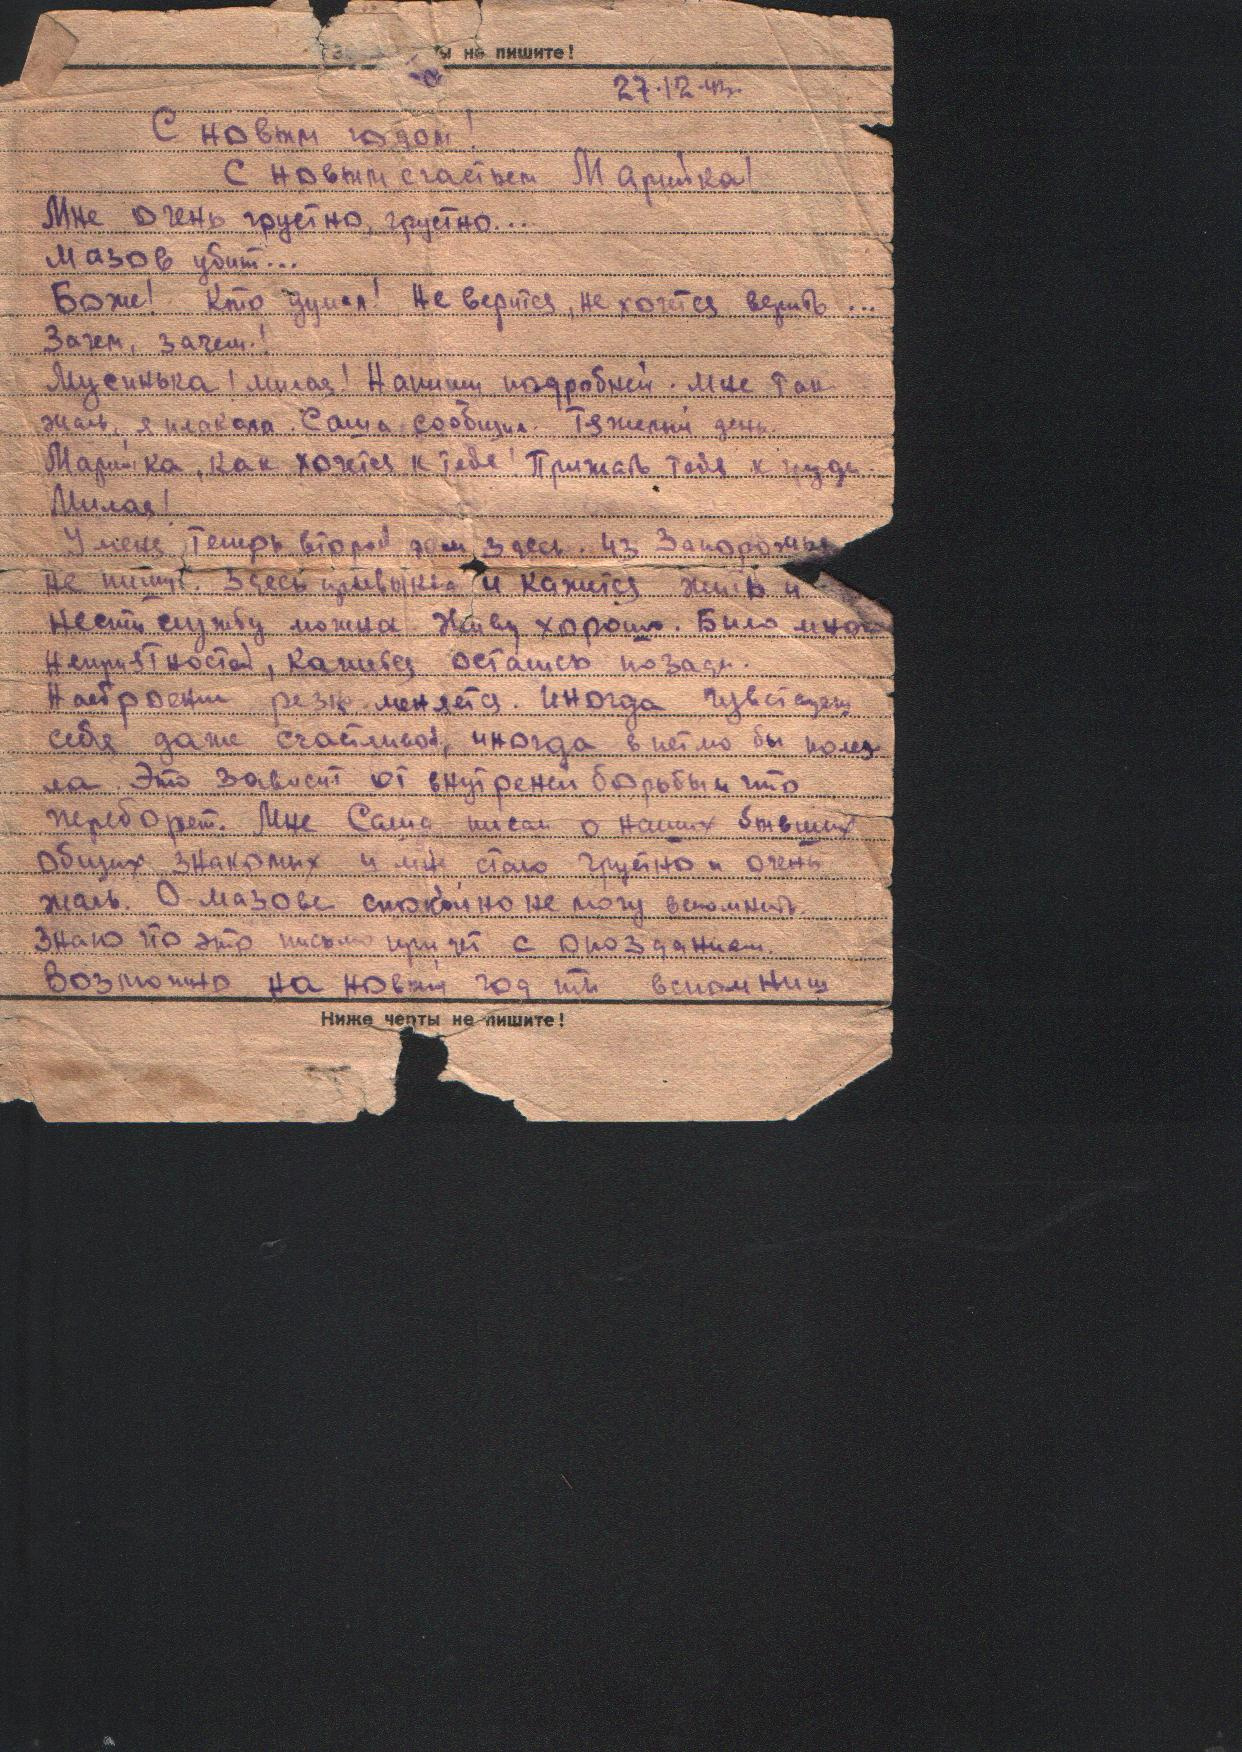 ы не пишите!
27.12.43г.
С новым годом!
С новым счастьем Марийка!
Мне очень грустно, грустно...
Мазов убит...
Боже! Кто думал! Не верится, не хочется верить...
Зачем, зачем!
Мусинька! милая! Напиши подробней. Мне так
жаль, я плакала. Саша сообщил. Тяжелый день.
Марийка, как хочется к тебе! Прижать тебя к груди.
Милая!
У меня теперь второй дом здесь. Из Запорожья
не пишут. Здесь привыкла и кажется жить и
нести службу можна. Живу хорошо. Было много
неприятностей, кажется остались позади.
Настроение резко меняется. Иногда чувствуеш
себя даже счастливой, иногда в петлю бы полез
ла. Это зависит от внутреней борьбы и что
переборет. Мне Саша писал о наших бывших
общих знакомых и мне стало грустно и очень
жаль. О Мазове спокойно не могу вспомнить.
Знаю что это письмо придет с опозданием.
Возможно на новый год ты вспомниш
Ниже черты не пишите!